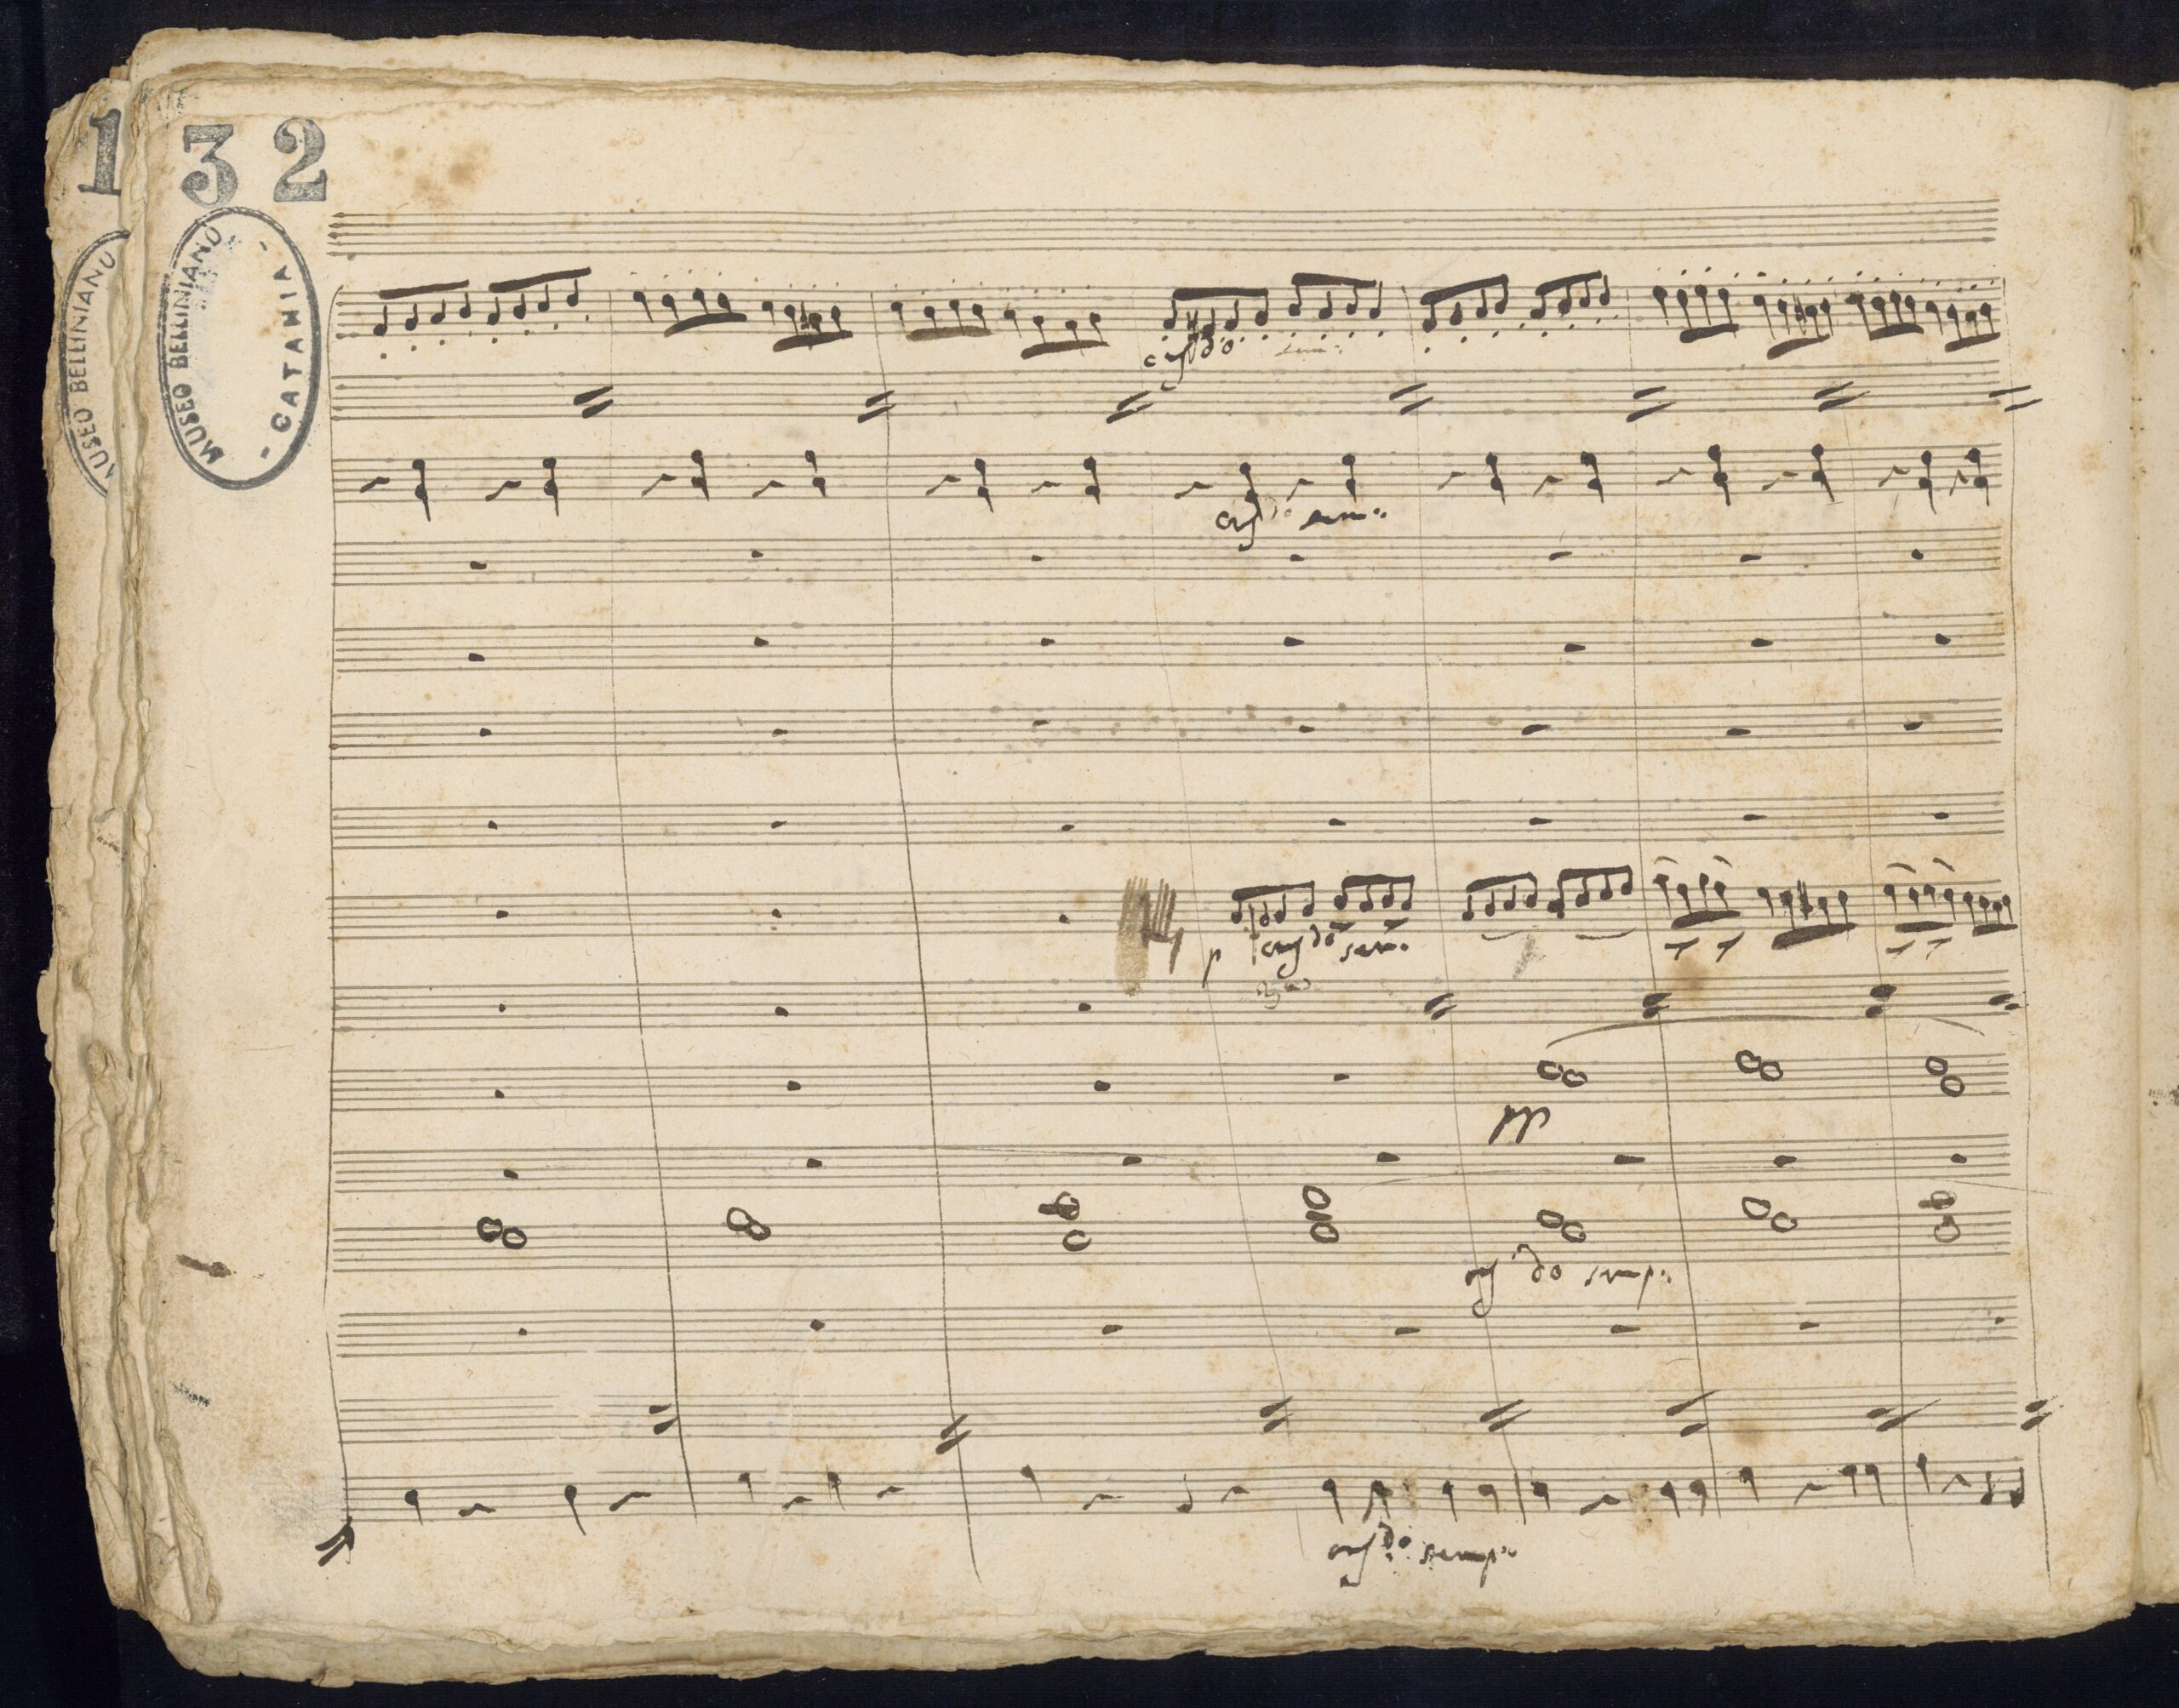 1
32
MUSEO BELLINIANO
- CATANIA -
MUSEO BELLINIANO
cresdo sem:
cresdo sem:
p cresdo sem:
pp
cresdo semp:
cresdo semp: